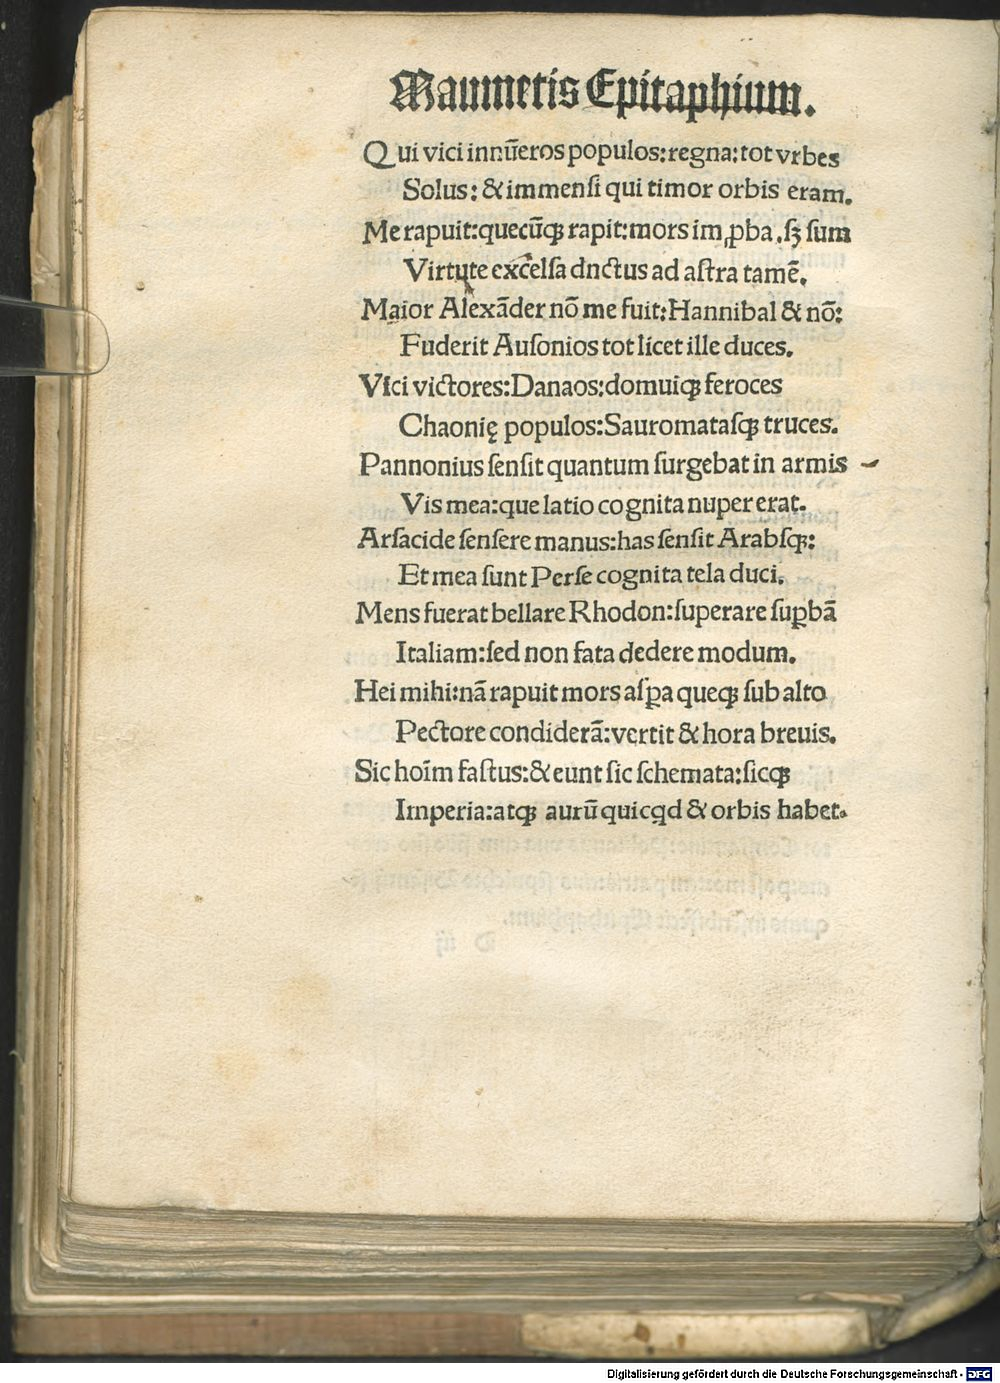 Maumetis Epitaphium.
Qui vici innũeros populos:regna:tot vrbes
Solus: & immensi qui timor orbis eram.
Me rapuit:quecũqꝫ rapit:mors imꝓba.sꝫ sum
Virtute excelsa dnctus ad astra tamẽ.
Maior Alexãder nõ me fuit:Hannibal & nõ:
Fuderit Ausonios tot licet ille duces.
Vici victores:Danaos:domuiqꝫ feroces
Chaonię populos:Sauromatasqꝫ truces.
Pannonius sensit quantum surgebat in armis
Vis mea:que latio cognita nuper erat.
Arsacide sensere manus:has sensit Arabsqꝫ:
Et mea sunt Perse cognita tela duci.
Mens fuerat bellare Rhodon:superare suꝑbã
Italiam:sed non fata dedere modum.
Hei mihi:nã rapuit mors asꝑa queqꝫ sub alto
Pectore condiderã:vertit & hora breuis.
Sic hoĩm fastus:& eunt sic schemata:sicqꝫ
Imperia:atqꝫ aurũ quicꝗd & orbis habet.
Digitalisierung gefördert durch die Deutsche Forschungsgemeinschaft - DFG